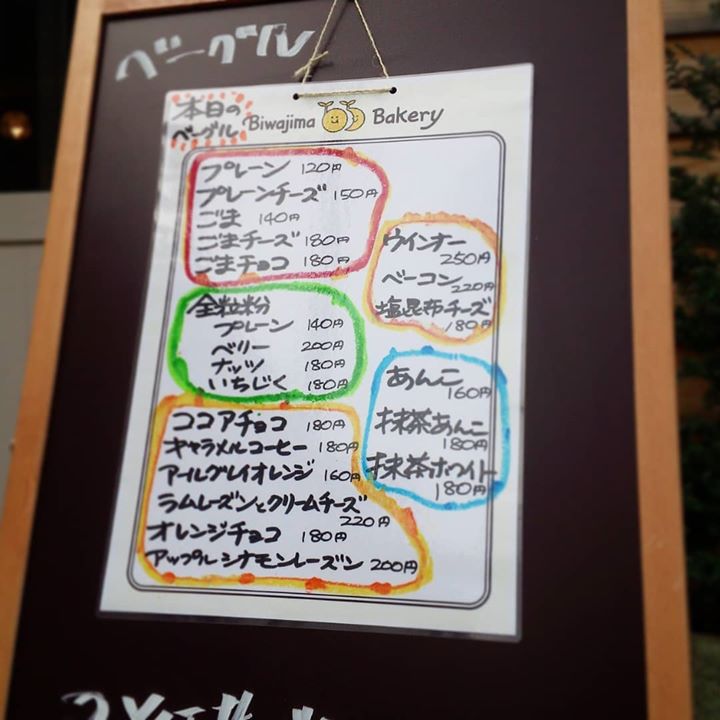 ベーグル
本日の
ベーグル
Biwajima Bakery
プレーン 120円
プレーンチーズ 150円
ごま 140円
ごまチーズ 180円
ごまチョコ 180円
全粒粉
プレーン 140円
ベリー 200円
ナッツ 180円
いちじく 180円
ココアチョコ 180円
キャラメルコーヒー 180円
アールグレイオレンジ 160円
ラムレーズンとクリームチーズ
220円
オレンジチョコ 180円
アップルシナモンレーズン 200円
ウインナー
250円
ベーコン 220円
塩昆布チーズ
180円
あんこ
160円
抹茶あんこ
180円
抹茶ホワイト
180円